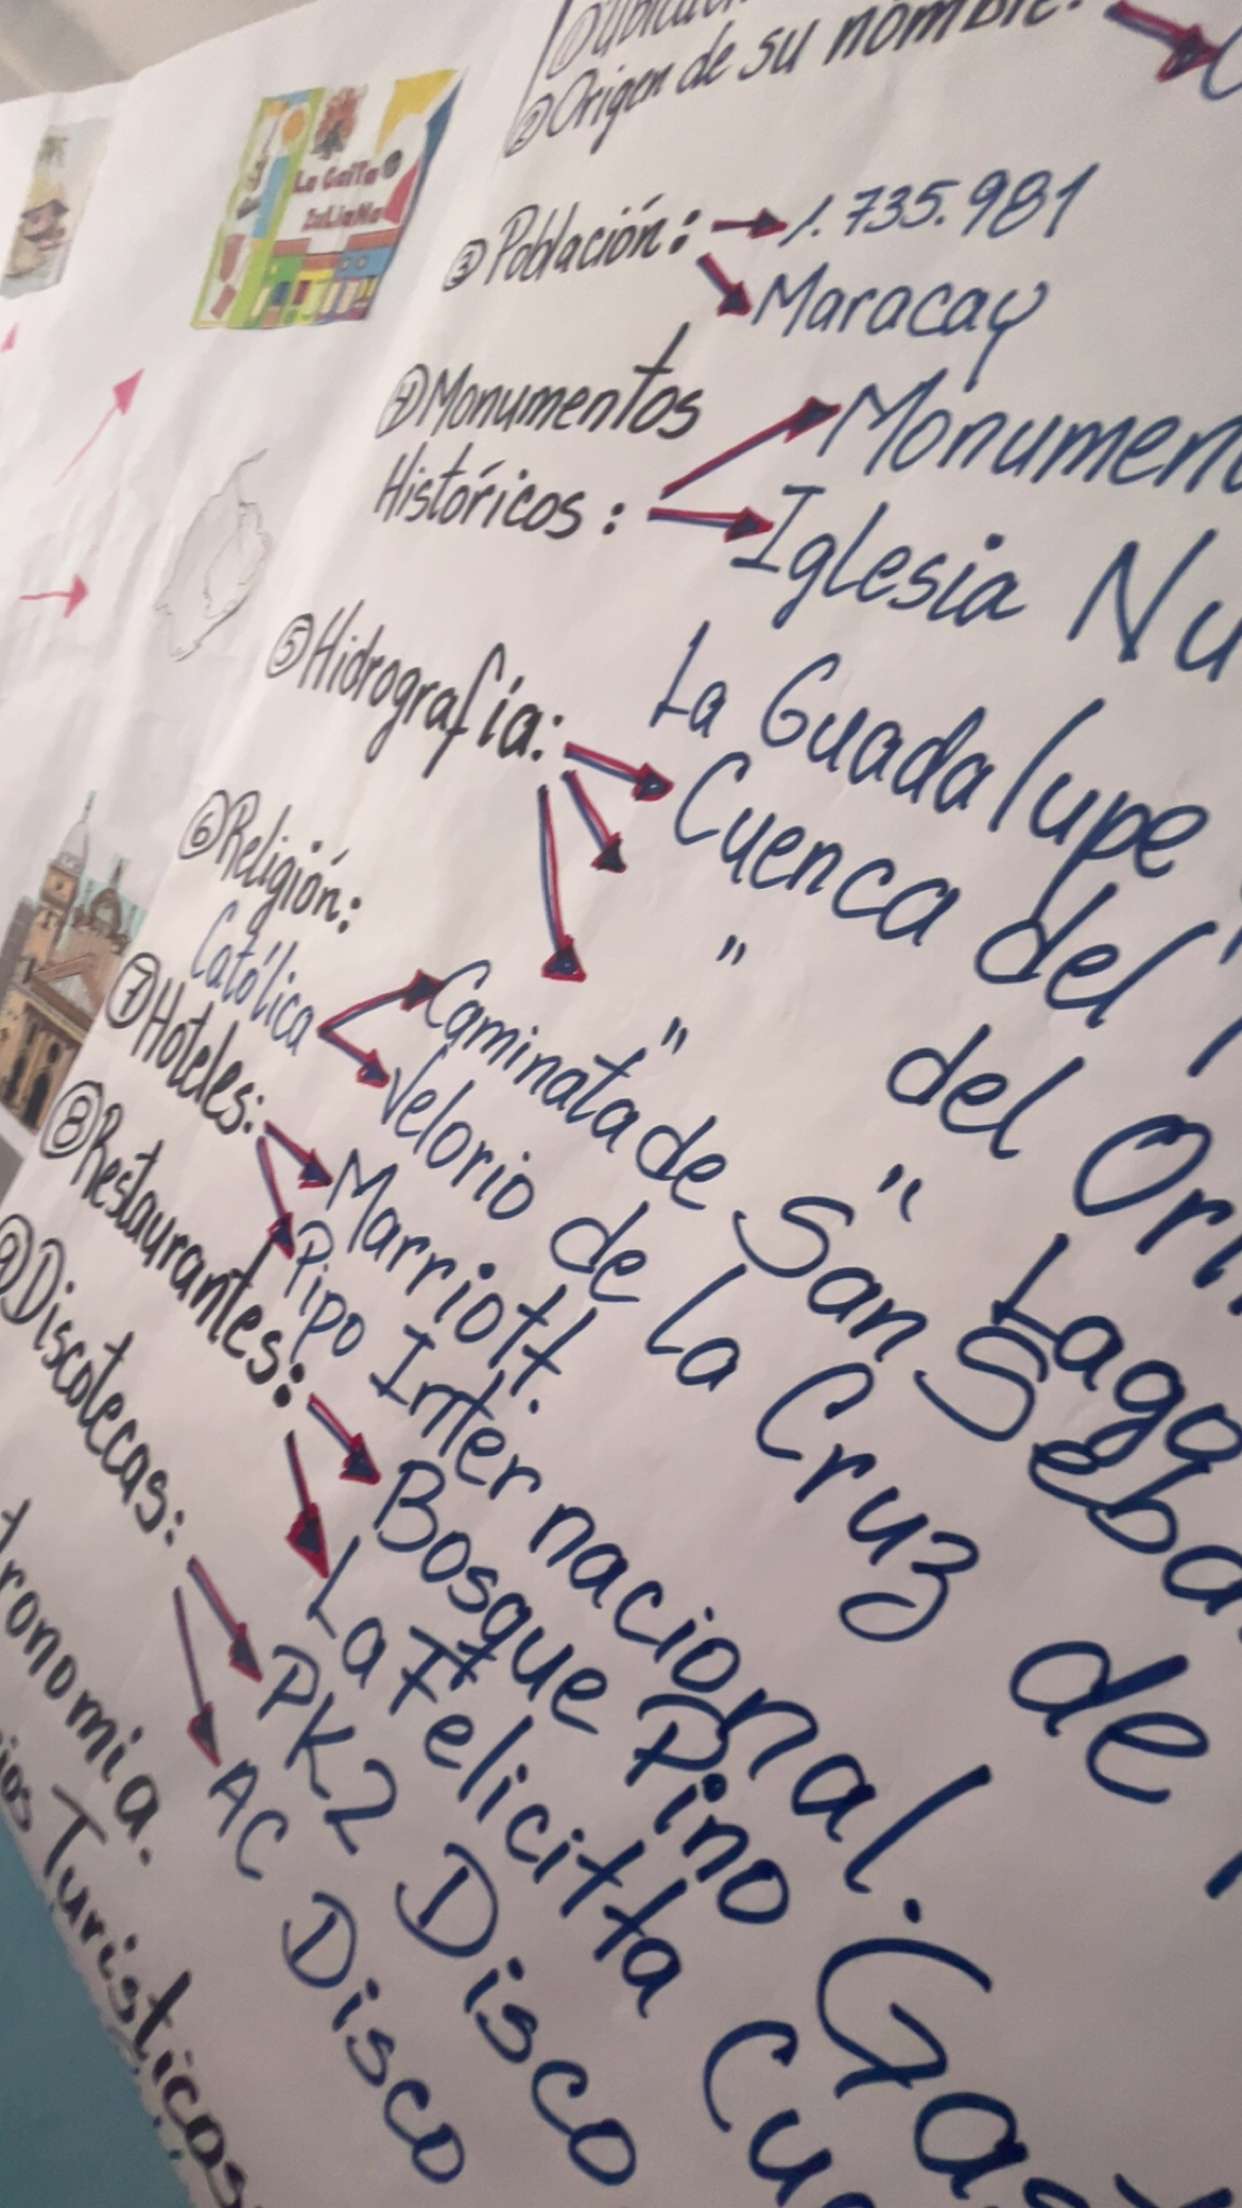 La Gaita
Zuliana
②Origen de su nombre:
③Población: 1.735.981
Maracay
④Monumentos
Históricos: Monumen
Iglesia Nu
La Guadalupe
⑤Hidrografía: Cuenca del
" del Ori
" " Lago
⑥Religión:
Católica Caminata de San Seba
Velorio de la Cruz de
⑦Hoteles: Marriott.
Pipo Internacional.
⑧Restaurantes: Bosque Pino Gast
La Felicitta Cu
⑨Discotecas: PK2 Disco
AC Disco
tronomia.
ios Turisticos.